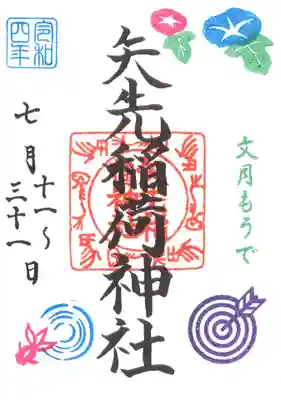 文月もうで
矢先稲荷神社
令和
四年
七月十一〜
三十一日